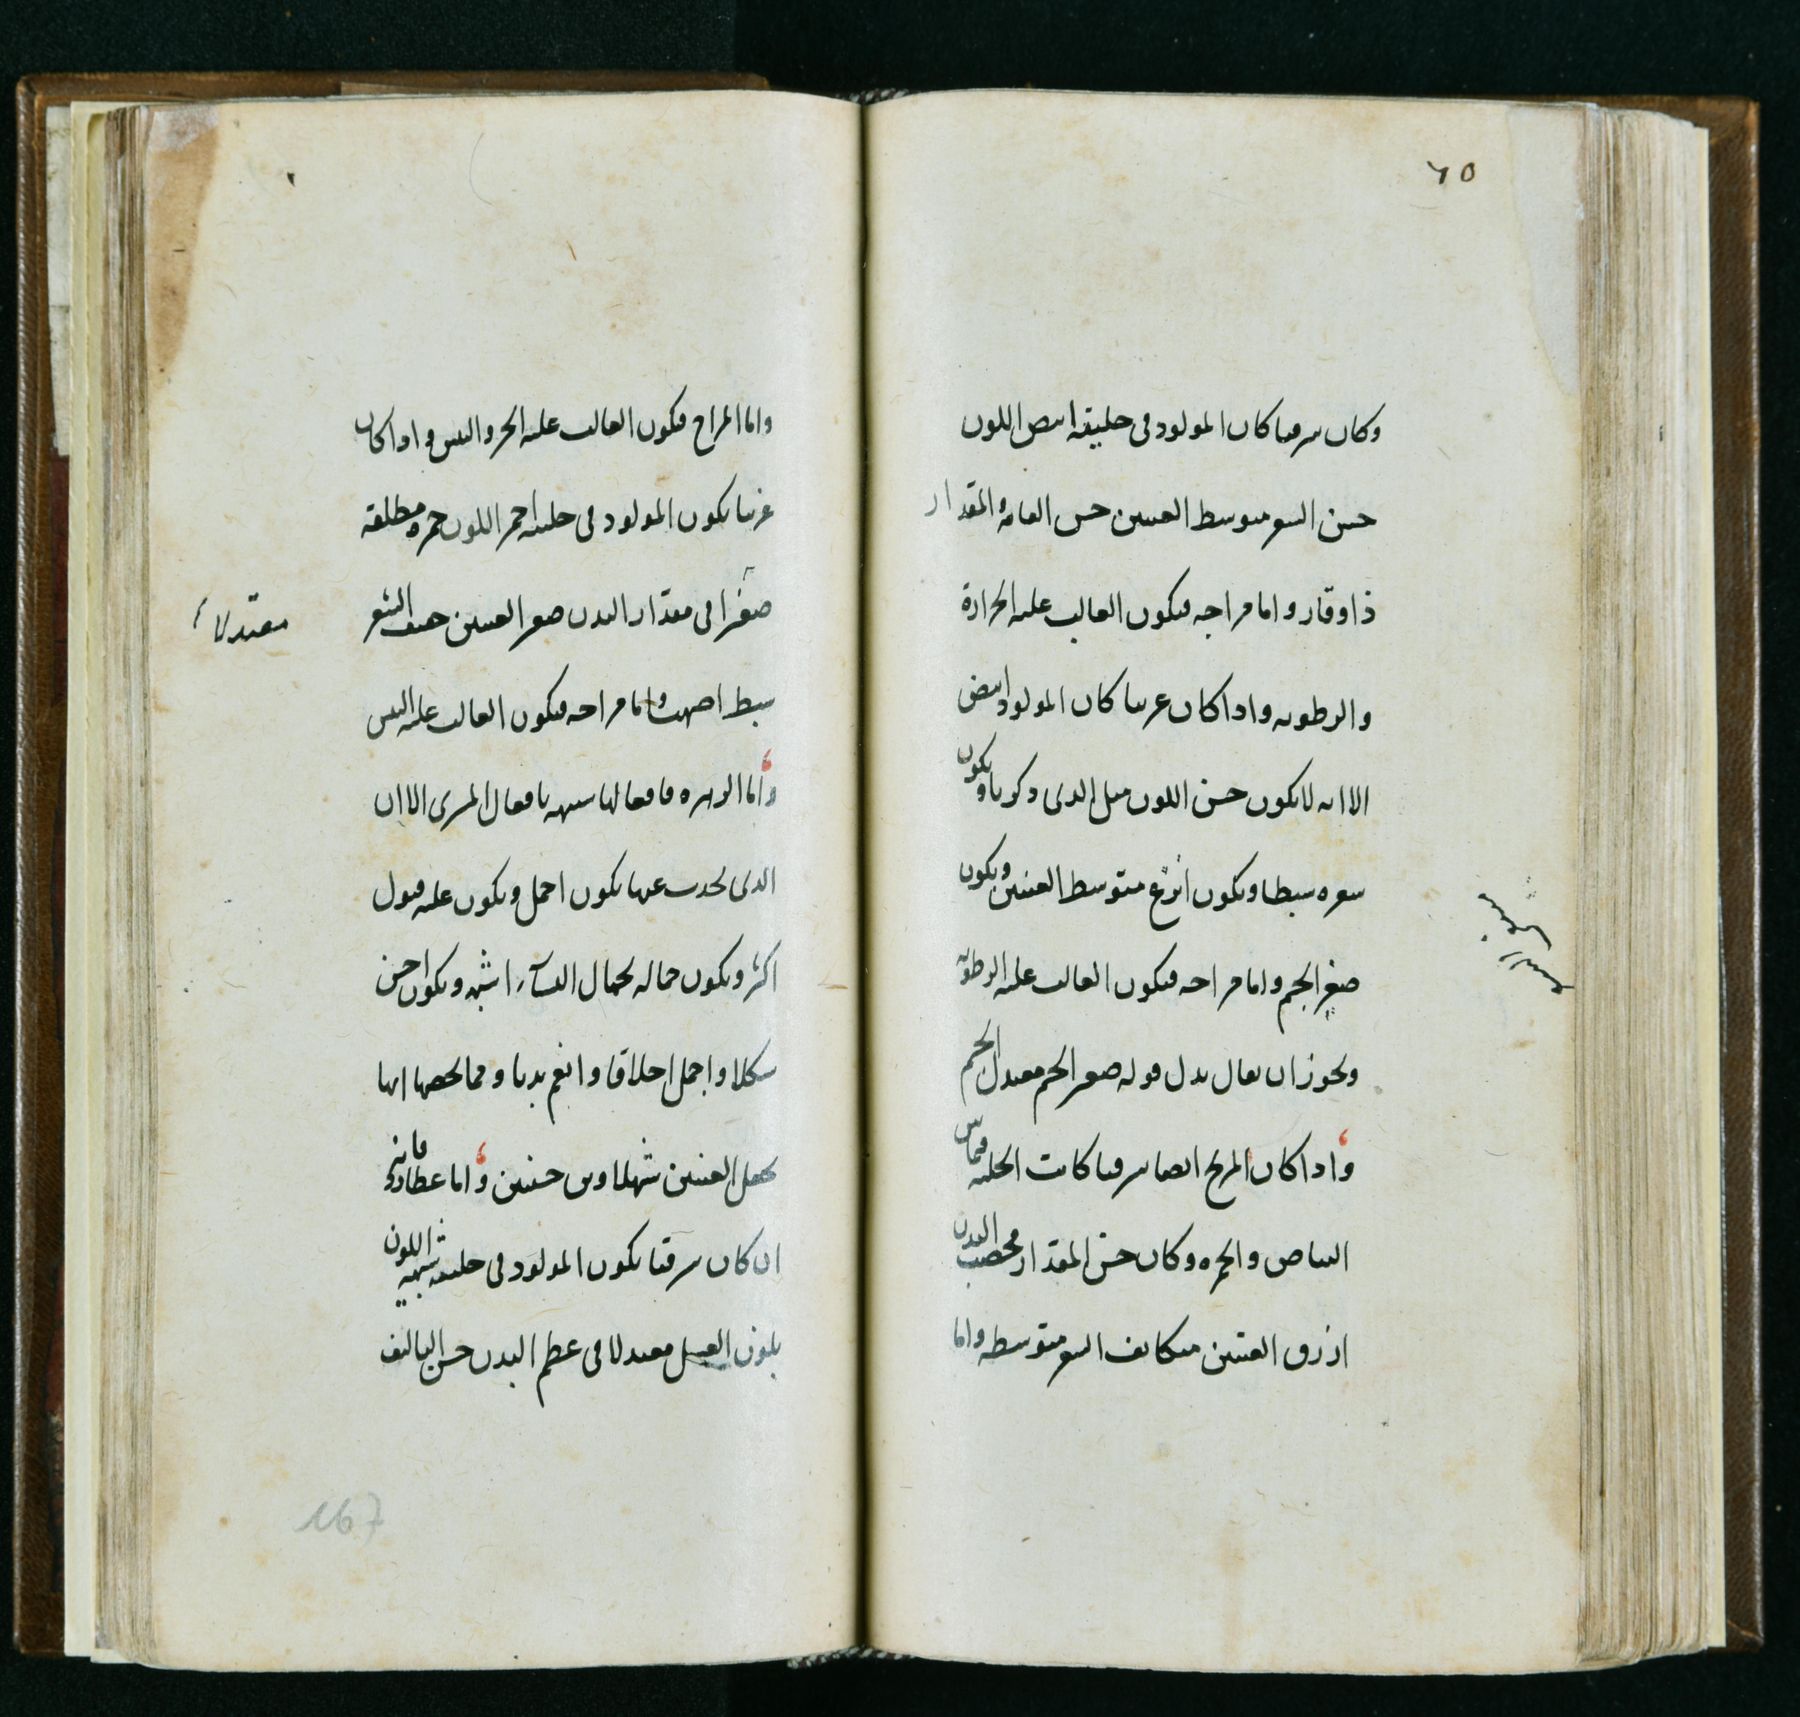 ٦٥
وكان سرقيا كان المولود في خليقته ابيض اللون
حسن الشعر متوسط العينين حسن القامة والمقدار
ذا وقار واما مزاجه فيكون الغالب عليه الحرارة
والرطوبه واذا كان غربيا كان المولود ابيض
الا انه لا يكون حسن اللون مثل الذي ذكرنا ويكون
شعره سبطا ويكون انزع متوسط العينين ويكون
صغير الجسم واما مزاجه فيكون الغالب عليه الرطوبه
ويجوز ان يقال بدل قوله صغير الجسم معتدل الجسم
واذا كان المريخ ايضا شرقيا كانت الخليقه
البياض والحمره وكان حسن المقدار مخصب البدن
ازرق العينين متكاثف الشعر متوسطه واما
واما المزاج فيكون الغالب عليه الحر واليبس واذا كان
غربيا يكون المولود في خليقته احمر اللون حمرة مطلقه
صغيرا في مقدار البدن صغير العينين خفيف الشعر
معتدلا
سبط اصهب واما مزاجه فيكون الغالب عليه اليبس
واما الزهره فافعالها شبيهه بافعال المشترى الا ان
الذي يحدث عنها يكون اجمل ويكون عليه قبول
اكثر ويكون جماله بجمال النسآء اشبه ويكون احسن
شكلا واجمل اخلاقا وانعم بدنا ومما يخصها انها
تجعل العينين شهلاوين حسنتين واما عطارد فانه
ان كان شرقيا يكون المولود في خليقته شبيه اللون
بلون العسل معتدلا في عظم البدن حسن التاليف
167